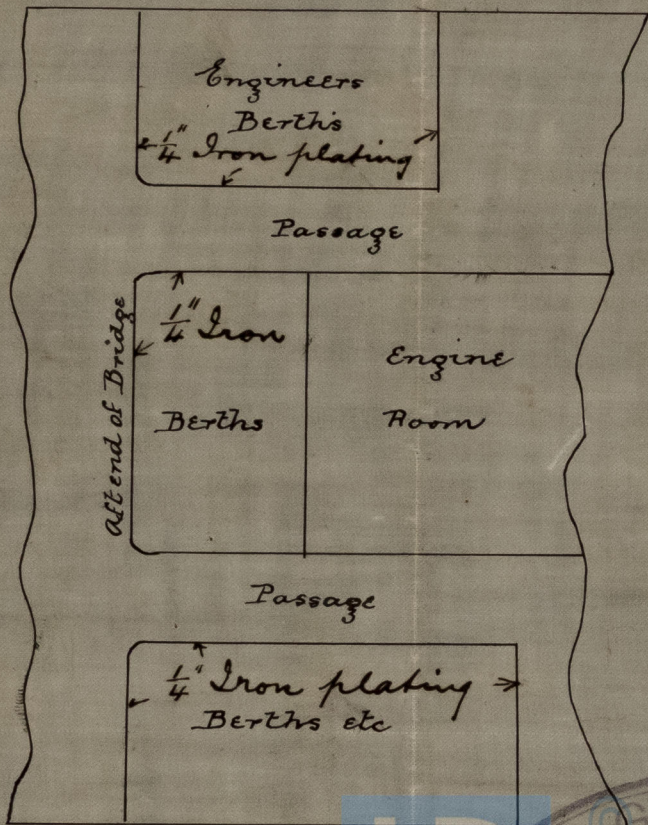 Engineers
Berths
1/4" Iron plating
Passage
1/4" Iron
After end of Bridge
Berths
Engine
Room
Passage
1/4" Iron plating
Berths etc